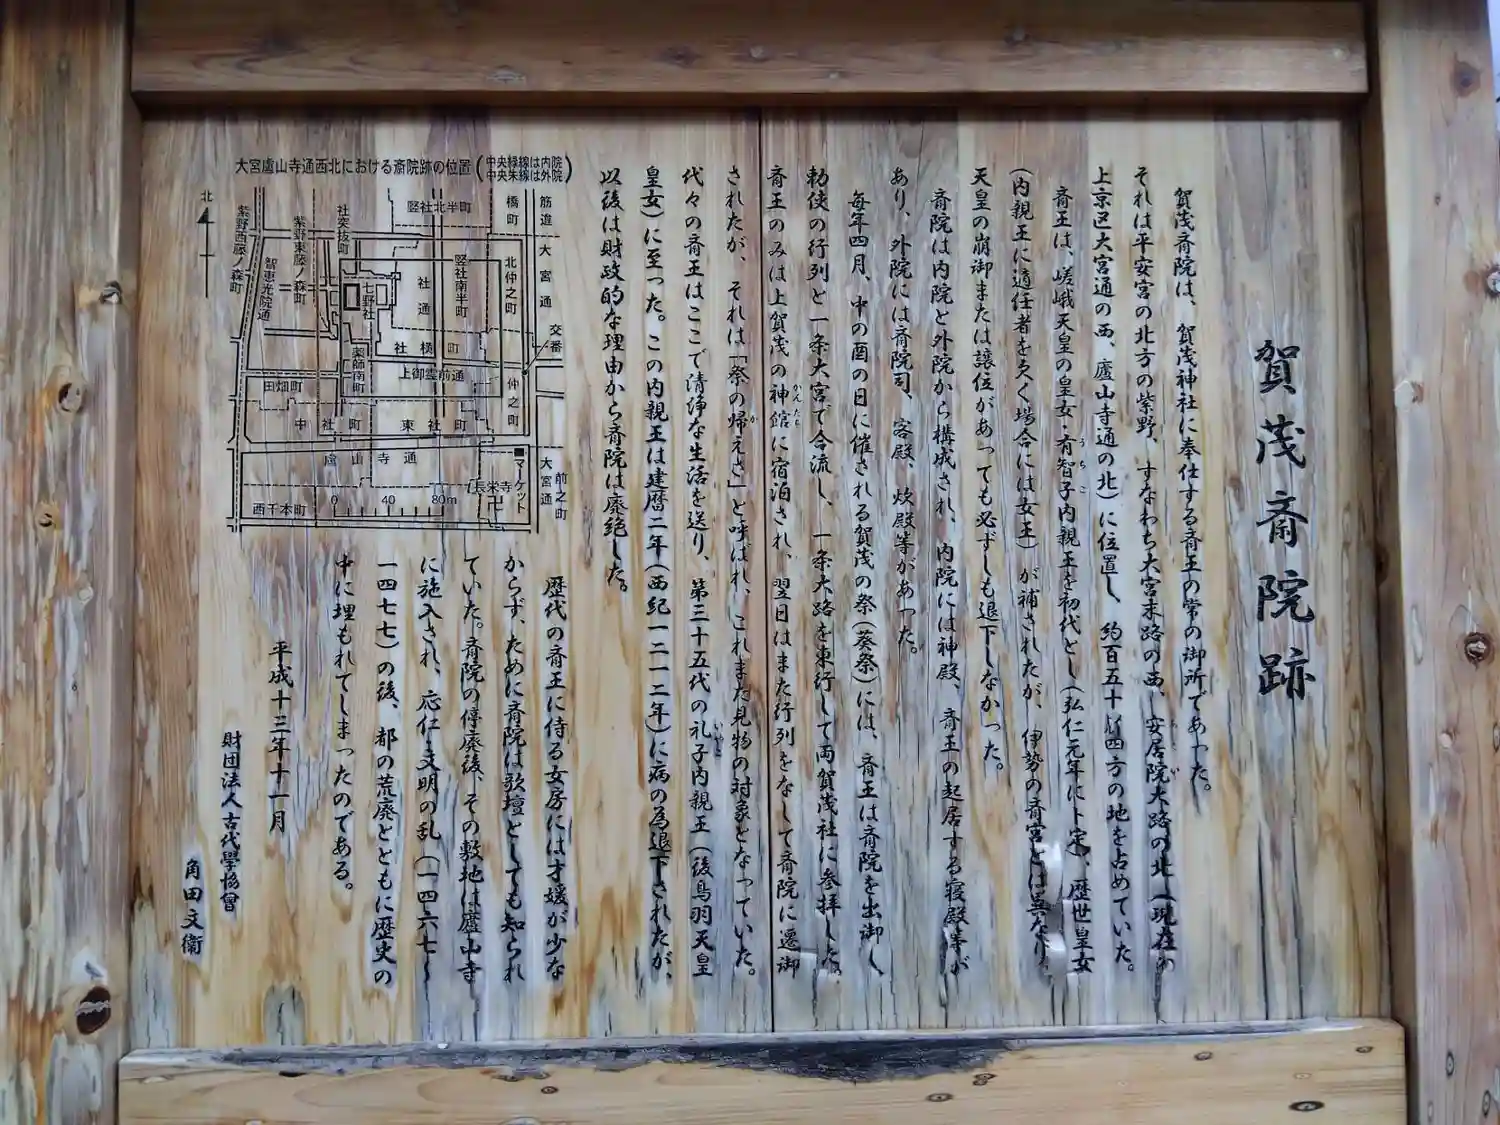 賀茂斎院跡
賀茂斎院は、賀茂神社に奉仕する斎王の常の御所であった。
それは平安宮の北方の紫野、すなわち大宮末路の西、安居院大路の北(現在の
上京区大宮通の西、廬山寺通の北)に位置し、約百五十m四方の地を占めていた。
斎王は、嵯峨天皇の皇女・有智子内親王を初代とし(弘仁元年に卜定)、歴世皇女
(内親王に適任者を欠く場合には女王)が補されたが、伊勢の斎宮とは異なり、
天皇の崩御または譲位があっても必ずしも退下しなかった。
斎院は内院と外院から構成され、内院には神殿、斎王の起居する寝殿等が
あり、外院には斎院司、客殿、炊殿等があった。
毎年四月、中の酉の日に催される賀茂の祭(葵祭)には、斎王は斎院を出御し、
勅使の行列と一条大宮で合流し、一条大路を東行して両賀茂社に参拝した。
斎王のみは上賀茂の神館に宿泊され、翌日はまた行列をなして斎院に還御
されたが、それは「祭の帰えさ」と呼ばれ、これまた見物の対象となっていた。
代々の斎王はここで清浄な生活を送り、第三十五代の礼子内親王(後鳥羽天皇
皇女)に至った。この内親王は建暦二年(西紀一二一二年)に病の為退下されたが、
以後は財政的な理由から斎院は廃絶した。
歴代の斎王に侍る女房には才媛が少な
からず、ために斎院は歌壇としても知られ
ていた。斎院の停廃後、その敷地は廬山寺
に施入され、応仁・文明の乱(一四六七〜
一四七七)の後、都の荒廃とともに歴史の
中に埋もれてしまったのである。
平成十三年十一月
財団法人古代學協會
角田文衞
大宮廬山寺通西北における斎院跡の位置(中央緑線は内院 中央朱線は外院)
北
紫野西藤ノ森町
紫野東藤ノ森町
智恵光院通
社突抜町
竪社北半町
橋町
筋違
大宮通
北仲之町
竪社南半町
社通
七野社
交番
社横町
薬師南町
上御霊前通
田畑町
仲之町
中社町
東社町
廬山寺通
マーケット
大宮通
前之町
長栄寺
西千本町
0 40 80m